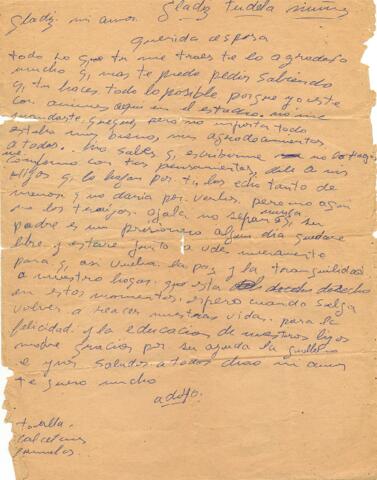 Gladiz Tudela
Gladiz mi amor.
querida esposa
todo lo que tu me traes te lo agradezco
mucho q mas te puedo pedir sabiendo
q tu haces todo lo posible porque yo este
con animos aqui en el estadio. no me
mandaste pero no importa todo
estaba muy bueno, mis agradecimientos
a todos. No sabes q escribirme no lo hagas
con tus pensamientos, dile a mis
Hijos q lo hagan por ti, los echo tanto de
menos q no daria por verlos, pero aqui
no los traigas. ojala no sepan nunca q su
padre es un prisionero algun dia quedare
libre y estare junto a uds nuevamente
para q asi vuelva la paz y la tranquilidad
a nuestro hogar que esta decho
en estos momentos. espero cuando salga
volver a reacer nuestras vidas para la
felicidad y la educacion de nuestros hijos
madre gracias por su ayuda la
e saludos a todos chao mi amor
te quero mucho
adolfo.
toalla.
calcetines